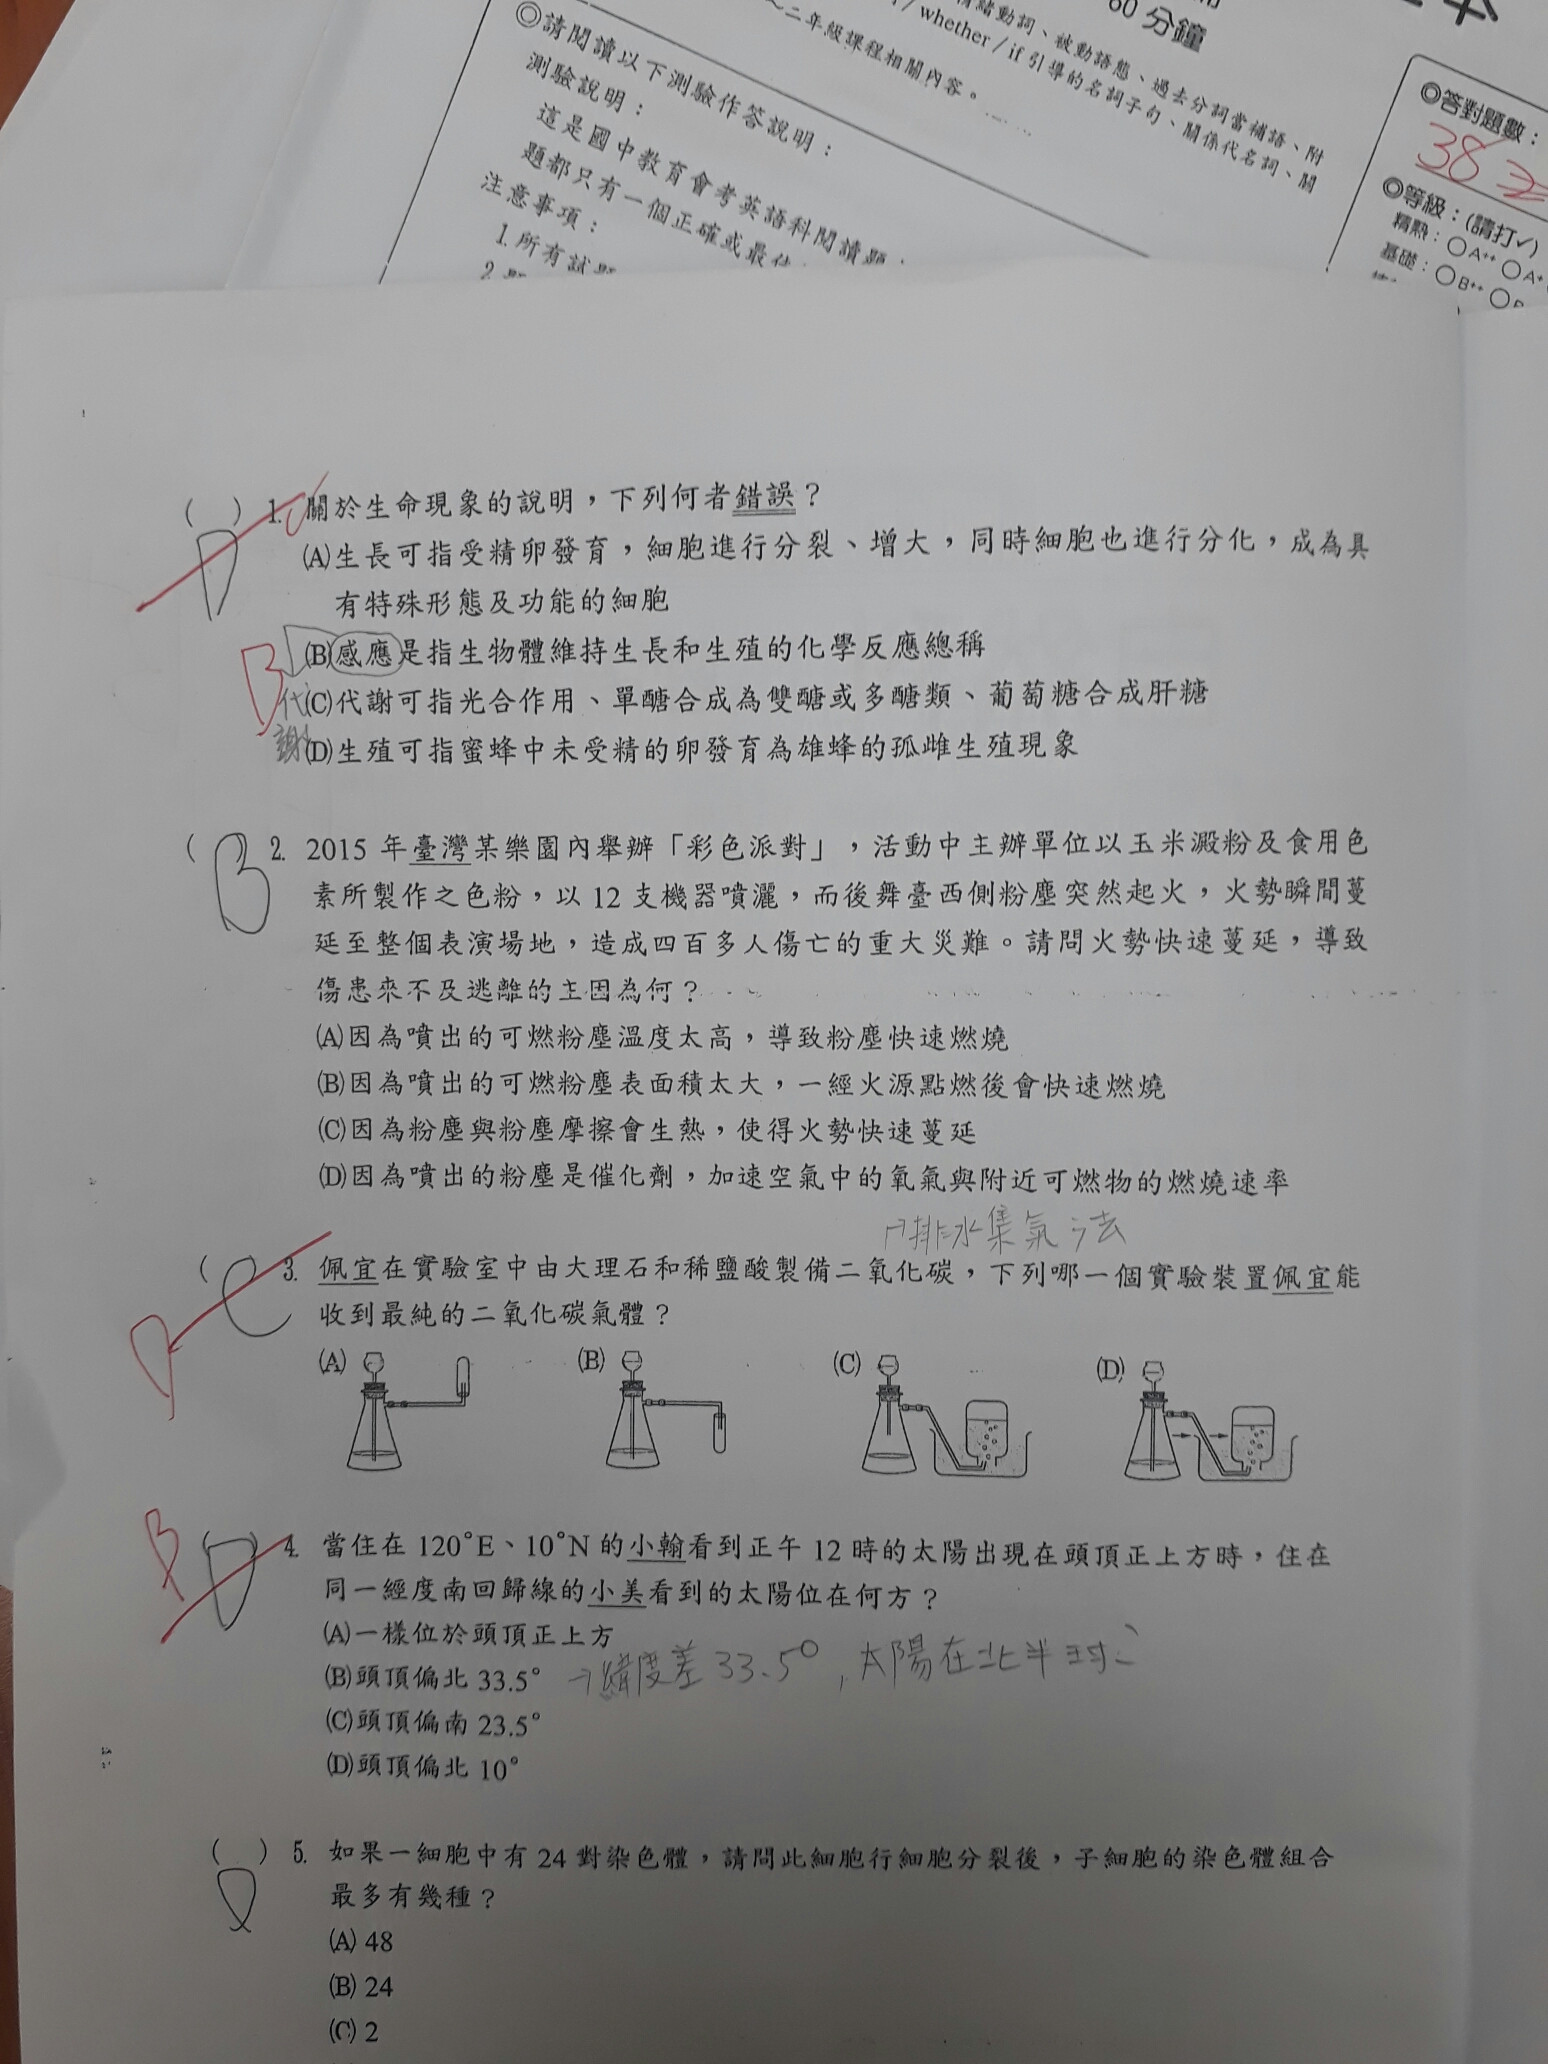 60 分鐘
情緒動詞、被動語態、過去分詞當補語、附
/ whether / if 引導的名詞子句、關係代名詞、關
～二年級課程相關內容。
◎請閱讀以下測驗作答說明：
測驗說明：
這是國中教育會考英語科閱讀題
題都只有一個正確或最佳
注意事項：
1. 所有試題
2.
◎答對題數：
38
◎等級：(請打✓)
精熟：○A++ ○A+
基礎：○B++ ○B
( ) 1. 關於生命現象的說明，下列何者錯誤？
D
(A)生長可指受精卵發育，細胞進行分裂、增大，同時細胞也進行分化，成為具
有特殊形態及功能的細胞
B (B)感應是指生物體維持生長和生殖的化學反應總稱
代謝
(C)代謝可指光合作用、單醣合成為雙醣或多醣類、葡萄糖合成肝糖
(D)生殖可指蜜蜂中未受精的卵發育為雄蜂的孤雌生殖現象
( B 2. 2015 年臺灣某樂園內舉辦「彩色派對」，活動中主辦單位以玉米澱粉及食用色
素所製作之色粉，以 12 支機器噴灑，而後舞臺西側粉塵突然起火，火勢瞬間蔓
延至整個表演場地，造成四百多人傷亡的重大災難。請問火勢快速蔓延，導致
傷患來不及逃離的主因為何？
(A)因為噴出的可燃粉塵溫度太高，導致粉塵快速燃燒
(B)因為噴出的可燃粉塵表面積太大，一經火源點燃後會快速燃燒
(C)因為粉塵與粉塵摩擦會生熱，使得火勢快速蔓延
(D)因為噴出的粉塵是催化劑，加速空氣中的氧氣與附近可燃物的燃燒速率
排水集氣法
D ( C 3. 佩宜在實驗室中由大理石和稀鹽酸製備二氧化碳，下列哪一個實驗裝置佩宜能
收到最純的二氧化碳氣體？
(A) (B) (C) (D)
B ( D ) 4. 當住在 120°E、10°N 的小翰看到正午 12 時的太陽出現在頭頂正上方時，住在
同一經度南回歸線的小美看到的太陽位在何方？
(A)一樣位於頭頂正上方
(B)頭頂偏北 33.5° →緯度差 33.5°，太陽在北半球
(C)頭頂偏南 23.5°
(D)頭頂偏北 10°
( ) 5. 如果一細胞中有 24 對染色體，請問此細胞行細胞分裂後，子細胞的染色體組合
D
最多有幾種？
(A) 48
(B) 24
(C) 2